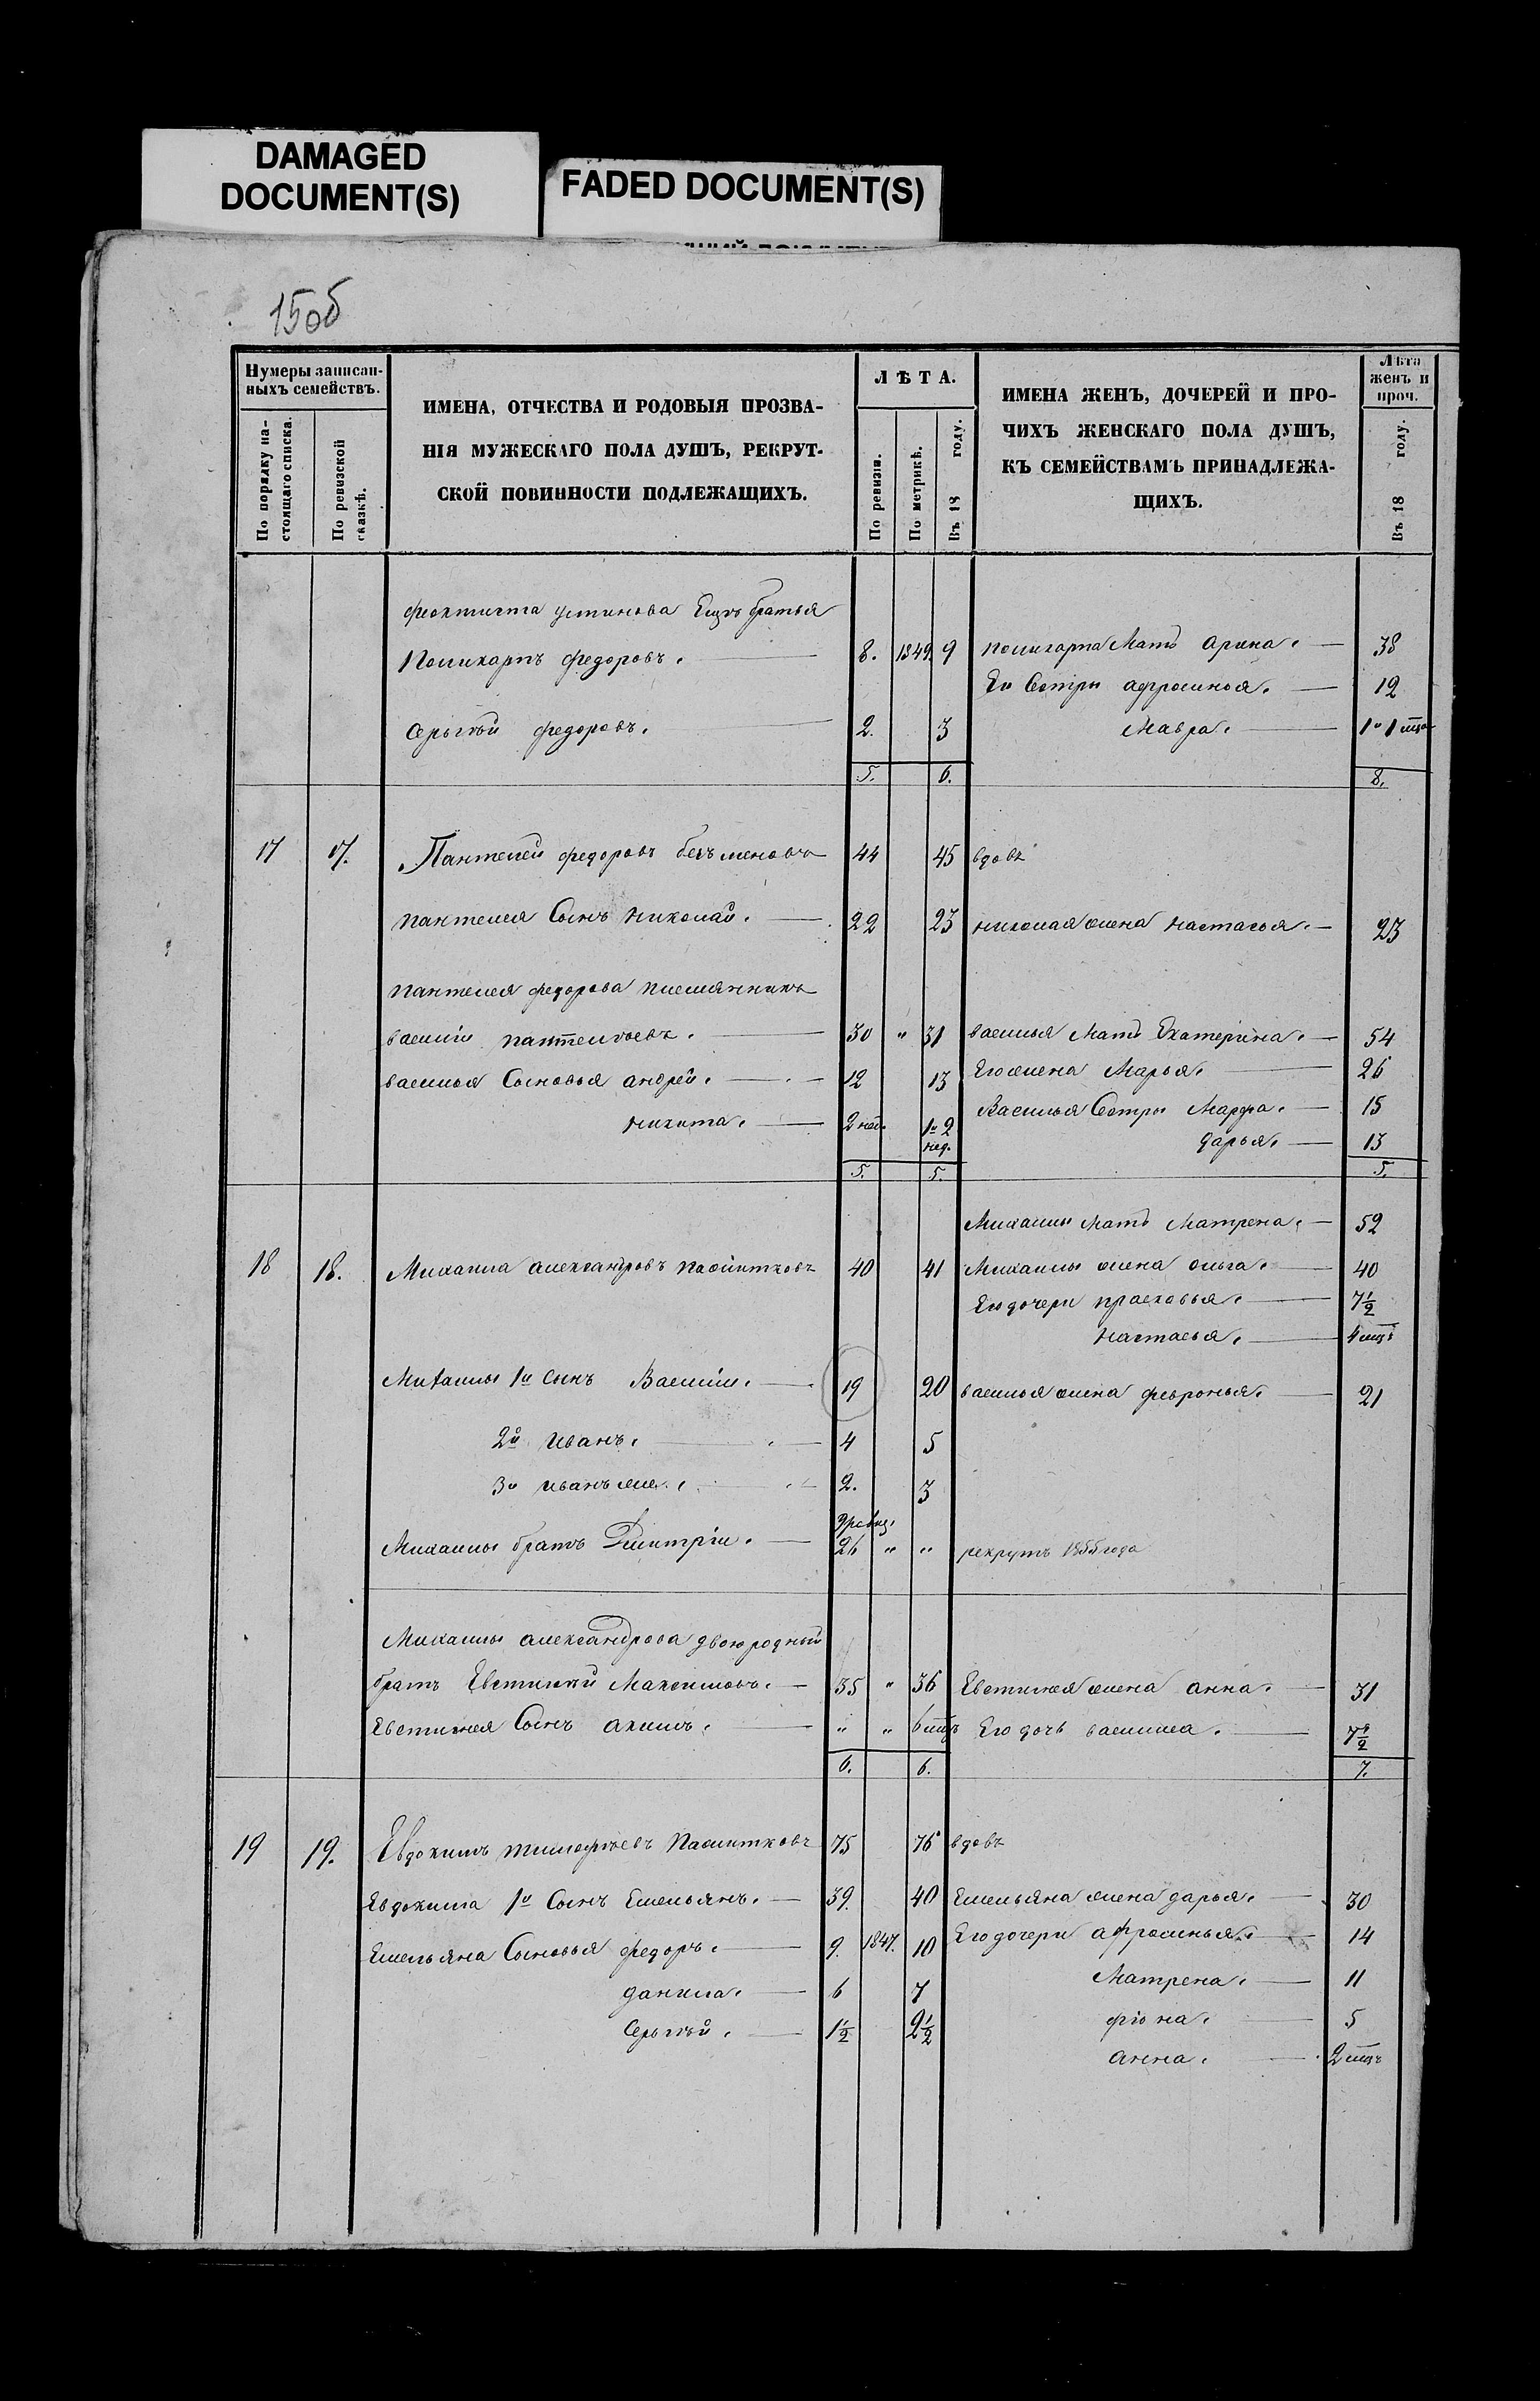 DAMAGED
DOCUMENT(S)
FADED DOCUMENT(S)
15об
Нумеры записан-
ныхъ семействъ.
По порядку на-
стоящаго списка.
По ревизской
сказкѣ.
ИМЕНА, ОТЧЕСТВА И РОДОВЫЯ ПРОЗВА-
НІЯ МУЖЕСКАГО ПОЛА ДУШЪ, РЕКРУТ-
СКОЙ ПОВИННОСТИ ПОДЛЕЖАЩИХЪ.
ЛѢТА.
По ревизіи.
По метрикѣ.
Въ 18 году.
ИМЕНА ЖЕНЪ, ДОЧЕРЕЙ И ПРО-
ЧИХЪ ЖЕНСКАГО ПОЛА ДУШЪ,
КЪ СЕМЕЙСТВАМЪ ПРИНАДЛЕЖА-
ЩИХЪ.
Лѣта
женъ и
проч.
Въ 18 году.
феоктиста устинова Ещъ братья
Поликарпъ федоровъ. 8. 1849. 9 поликарпа Мать арина. 38
Ея Сестры афросинья. 12
Сергѣй федоровъ. 2. 3 Мавра. 1 и 1 мца
5. 6. 8.
17 17. Пантелей федоровъ 44 45 вдовъ
пантелея Сынъ николай. 22 23 николая жена настасья. 23
пантелея федорова племянникъ
василій пантелѣевъ. 30 " 31 василья Мать Екатерина. 54
василья Сыновья андрей. 12 13 Его жена Марья. 26
Василья Сестры Марфа. 15
никита. 2 нед. 1 и 2 нед.
дарья. 13
5. 5. 5.
Михаилы мать Матрена. 52
18 18. Михаила александровъ 40 41 Михаилы жена ольга. 40
Его дочери прасковья. 7½
настасья. 4 мца
Михаилы 1й сынъ Василій. 19 20 василья жена февронья. 21
2й иванъ. 4 5
3й иванъ же. 2. 3
Михаилы братъ Дмитрій. 26 " " рекрутъ 1855 года
Михаилы александрова двоюродный
братъ Евстигнѣй Максимовъ. 35 " 36 Евстигнея жена анна. 31
Евстигнея Сынъ акимъ. " " 6 мцъ Его дочь василиса. 7½
6. 6. 7.
19 19. Евдокимъ тимофѣевъ 75 76 вдовъ
Евдокима 1й Сынъ Емельянъ. 39. 40 Емельяна жена дарья. 30
Емельяна Сыновья федоръ. 9. 1847. 10 Его дочери афросинья. 14
данила. 6 7 Матрена. 11
Сергѣй. 1½ 2½ фіона. 5
анна. 2 мцъ